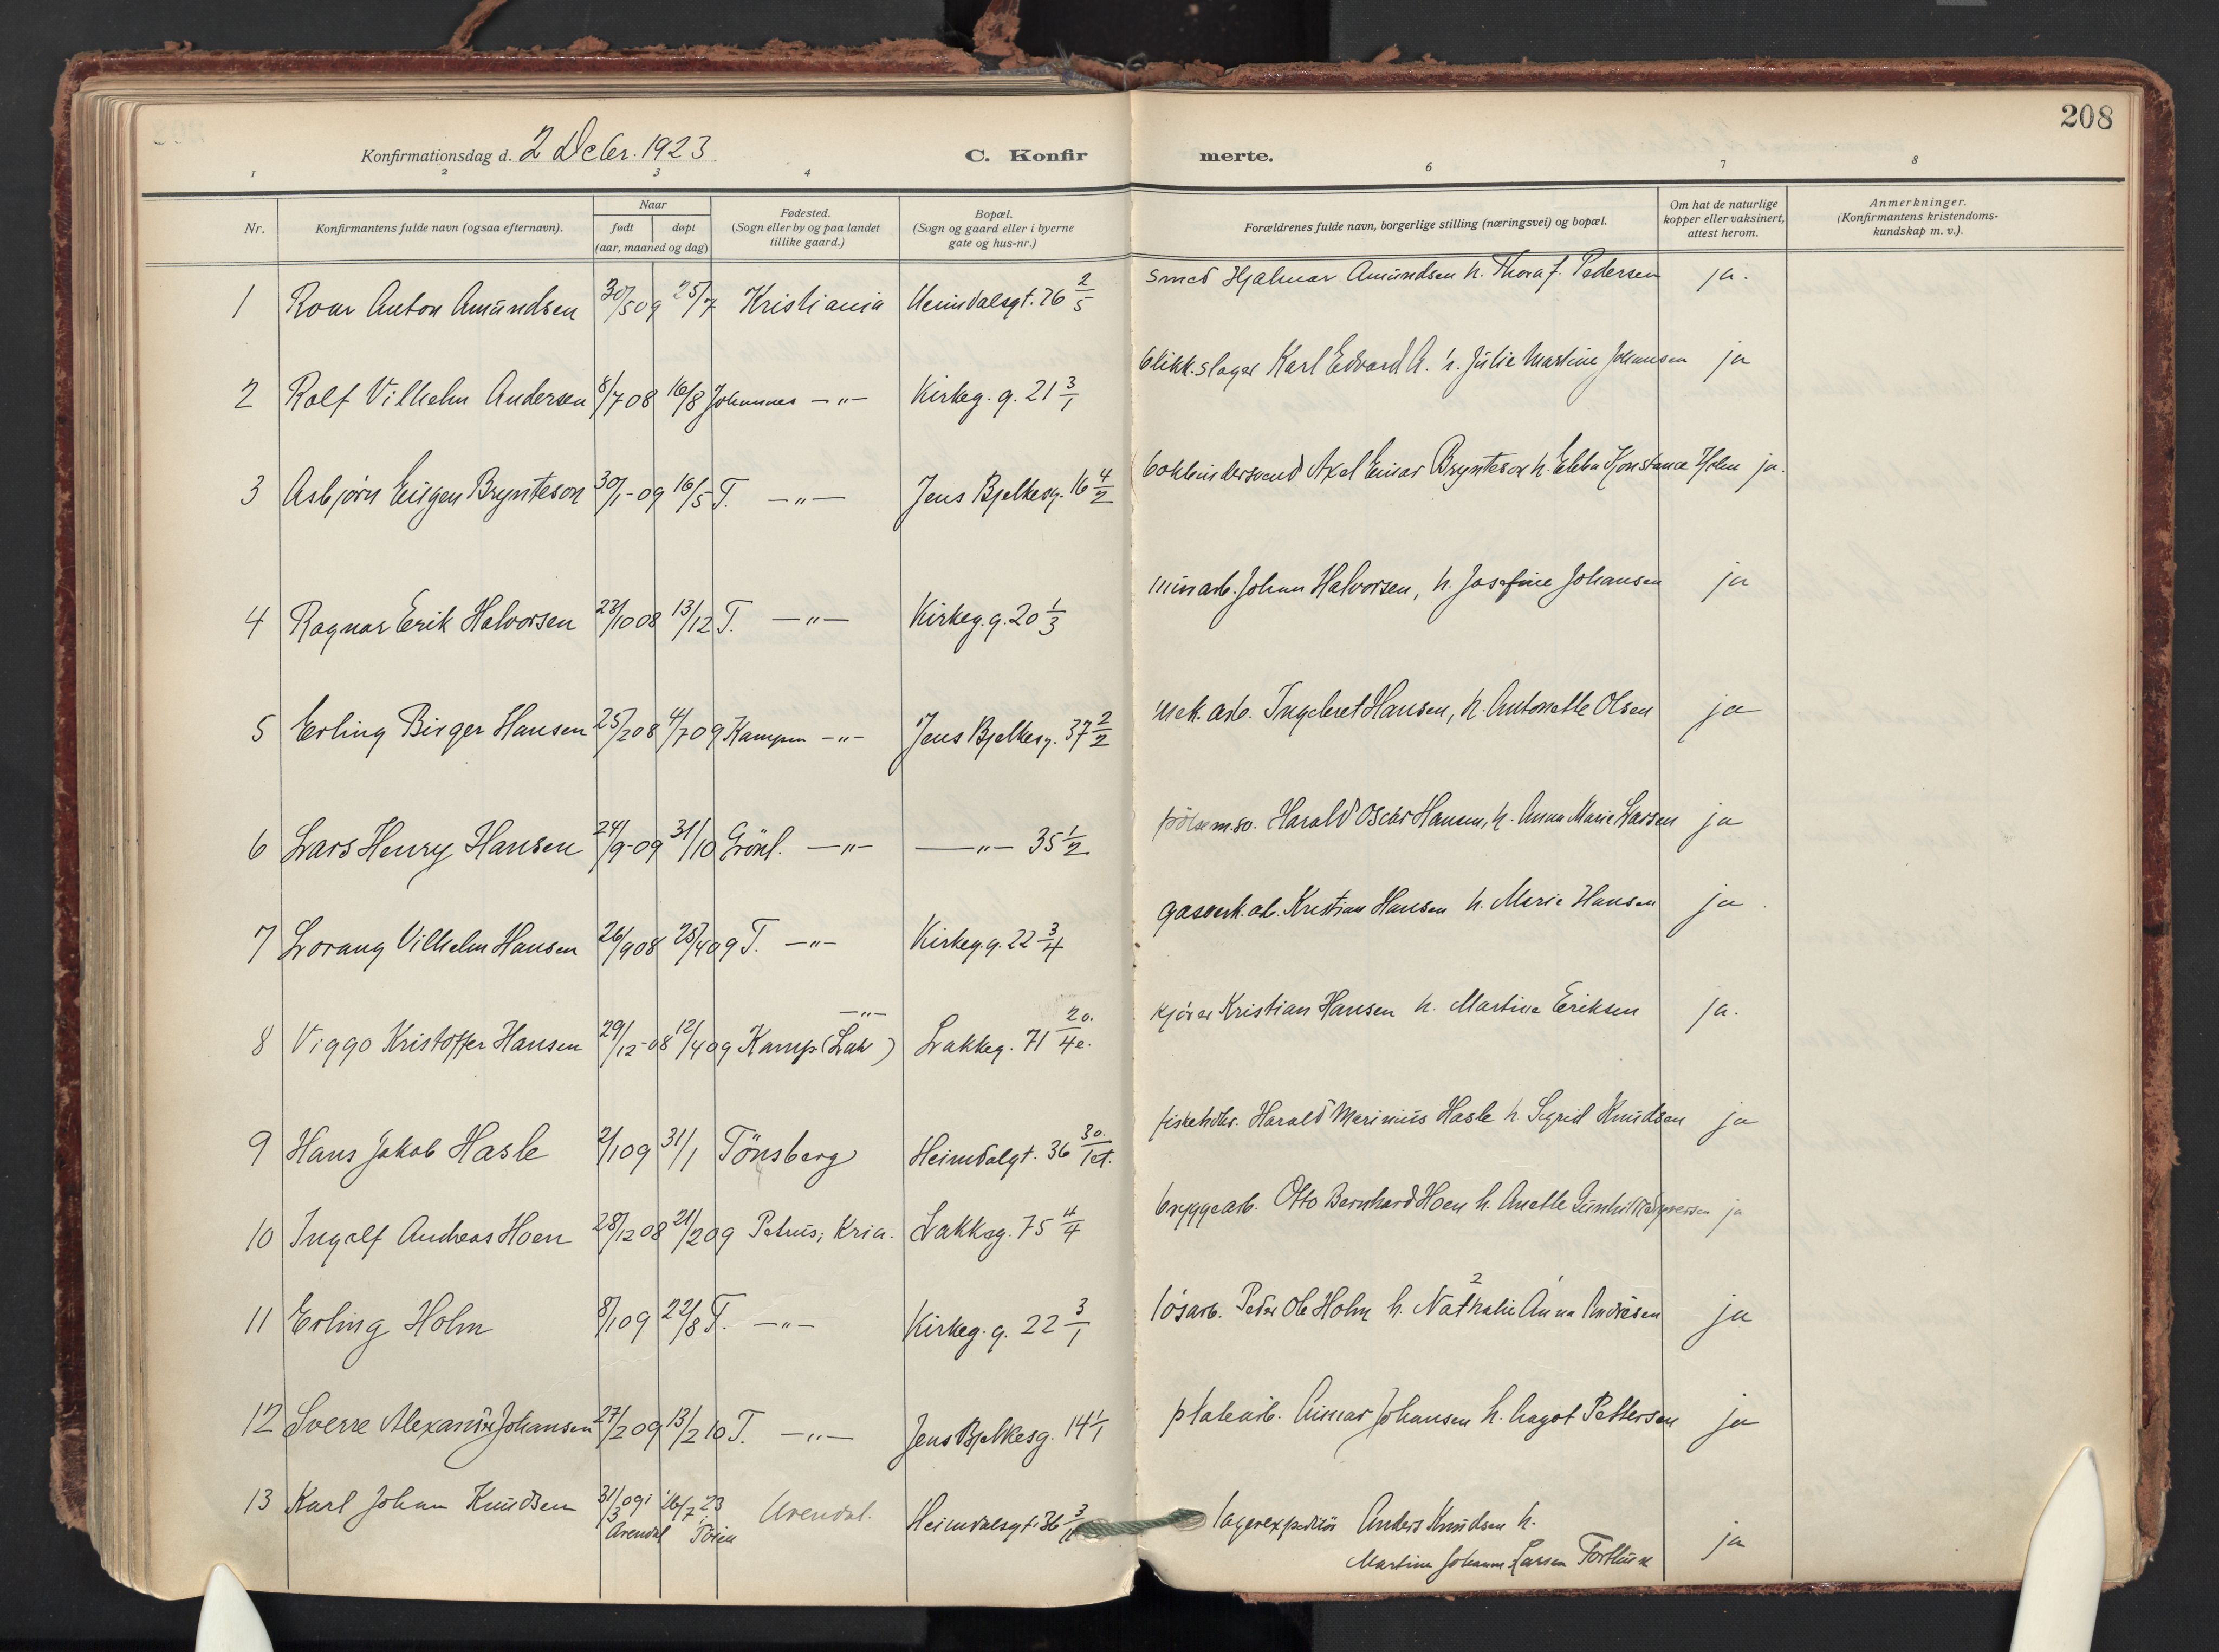 208
Konfirmationsdag d. 2 Decbr. 1923
C. Konfirmerte.
1 2 3 4 6 7 8
Nr. Konfirmantens fulde navn (ogsaa efternavn). Naar født døpt (aar, maaned og dag) Fødested. (Sogn eller by og paa landet tillike gaard.) Bopæl. (Sogn og gaard eller i byerne gate og hus-nr.) Forældrenes fulde navn, borgerlige stilling (næringsvei) og bopæl. Om hat de naturlige kopper eller vaksinert, attest herom. Anmerkninger. (Konfirmantens kristendoms-kundskap m. v.).
1 Roar Anton Amundsen 30/5 09 25/7 Kristiania Heimdalsgt. 26 2/5 smed Hjalmar Amundsen h. Thora f. Pedersen ja.
2 Rolf Vilhelm Andersen 8/7 08 16/8 Johannes —"— Kirkeg. g. 21 3/1 blikk.slager Karl Edvard A. h. Julie Martine Johansen ja
3 Asbjörn Eugen Brynteson 30/1-09 16/5 T. —"— Jens Bjelkesg. 16 4/2 bokbindersvend Axel Einar Brynteson h. Ebba Konstance ja.
4 Ragnar Erik Halvorsen 23/10 08 13/12 T. —"— Kirkeg. g. 20 1/3 murarb. Johan Halvorsen, h. Josefine Johansen ja
5 Erling Birger Hansen 25/2 08 4/7 09 Kampen —"— Jens Bjelkesg. 37 2/2 mek. arb. Ingebret Hansen, h. Antonette Olsen ja
6 Lars Henry Hansen 24/9-09 31/10 Grönl. —"— —"— 35 1/2 Harald Oscar Hansen, h. Anna Marie Larsen ja
7 Lorang Vilhelm Hansen 26/9 08 25/4 09 T. —"— Kirkeg. g. 22 3/4 gasverk. arb. Kristian Hansen h. Marie Hansen ja
8 Viggo Kristoffer Hansen 29/12-08 12/4 09 Kamp (Lak) —"— Lakkeg. 71 20./4e. kjörer Kristian Hansen h. Martine Eriksen ja.
9 Hans Jakob Hasle 2/1 09 31/1 Tönsberg Heimdalgt. 36 30./1et. fiskehdlr. Harald Marinius Hasle h Sigrid Knudsen ja
10 Ingolf Andreas Hoen 28/12 08 21/2 09 Petrus; Kria. Lakkeg. 75 4/4 bryggearb. Otto Bernhard Hoen h. Anette ja
11 Erling Holm 8/1 09 22/8 T. —"— Kirkeg. g. 22 3/1 lösarb. Peder Ole Holm h. Nathalie Anna Andresen ja
12 Sverre Alexander Johansen 27/2 09 13/2 10 T. —"— Jens Bjelkesg. 14 1/1 platearb. Einar Johansen h. Aagot Pettersen ja
13 Karl Johan Knudsen 31/3 09 i Arendal 16/7 23 i Töien Arendal. Heimdalsgt. 36 lagerexpeditör Anders Knudsen h.
Martine Johanne Larsen ja